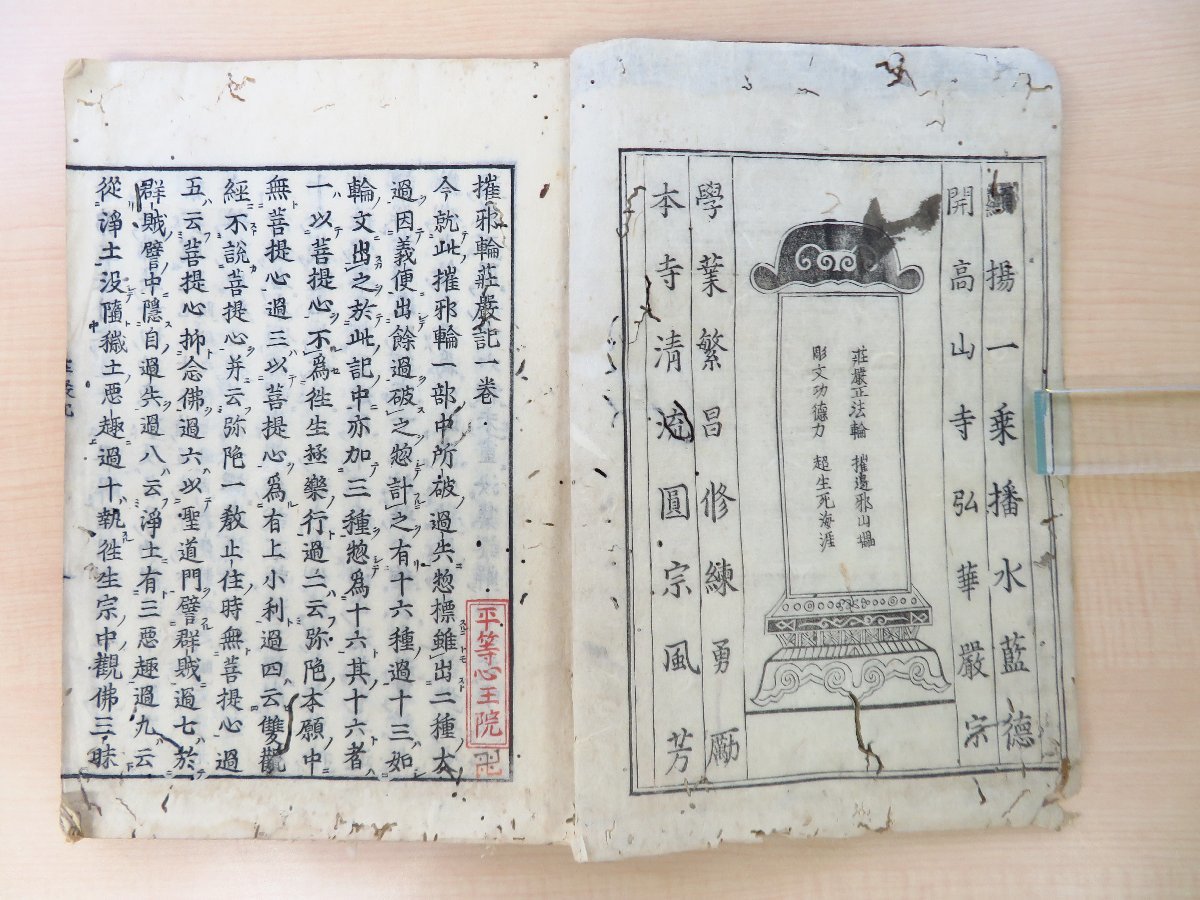 揚一乗播水藍德
開高山寺弘華嚴宗
莊嚴正法輪 摧邊邪山
彫文功德力 超生死海涯
學業繁昌修練勇勵
本寺清流圓宗風芳
摧邪輪莊嚴記一卷
今就此摧邪輪一部中所破過失惣標雖出二種大
過因義便出餘過破之惣計之有十六種過十三如
輪文出之於此記中亦加三種惣爲十六其十六者
一以菩提心不爲徃生極樂行過二云弥陀本願中
無菩提心過三以菩提心爲有上小利過四云雙觀
經不說菩提心并云弥陀一教止住時無菩提心過
五云菩提心抑念佛過六以聖道門譬群賊過七於
群賊譬中隱自過失過八云淨土有三惡趣過九云
從淨土没隨穢土惡趣過十執徃生宗中觀佛三昧
平等心王院
卍